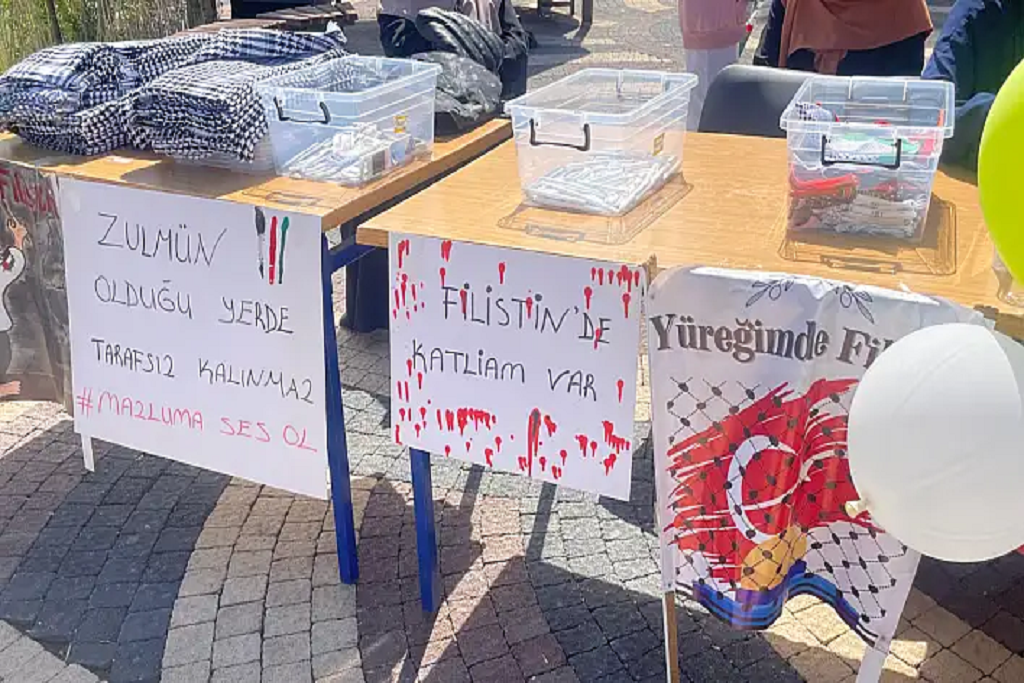 ZULMÜN
OLDUĞU YERDE
TARAFSIZ KALINMAZ
#MAZLUMA SES OL
FİLİSTİN'DE
KATLİAM VAR
Yüreğimde